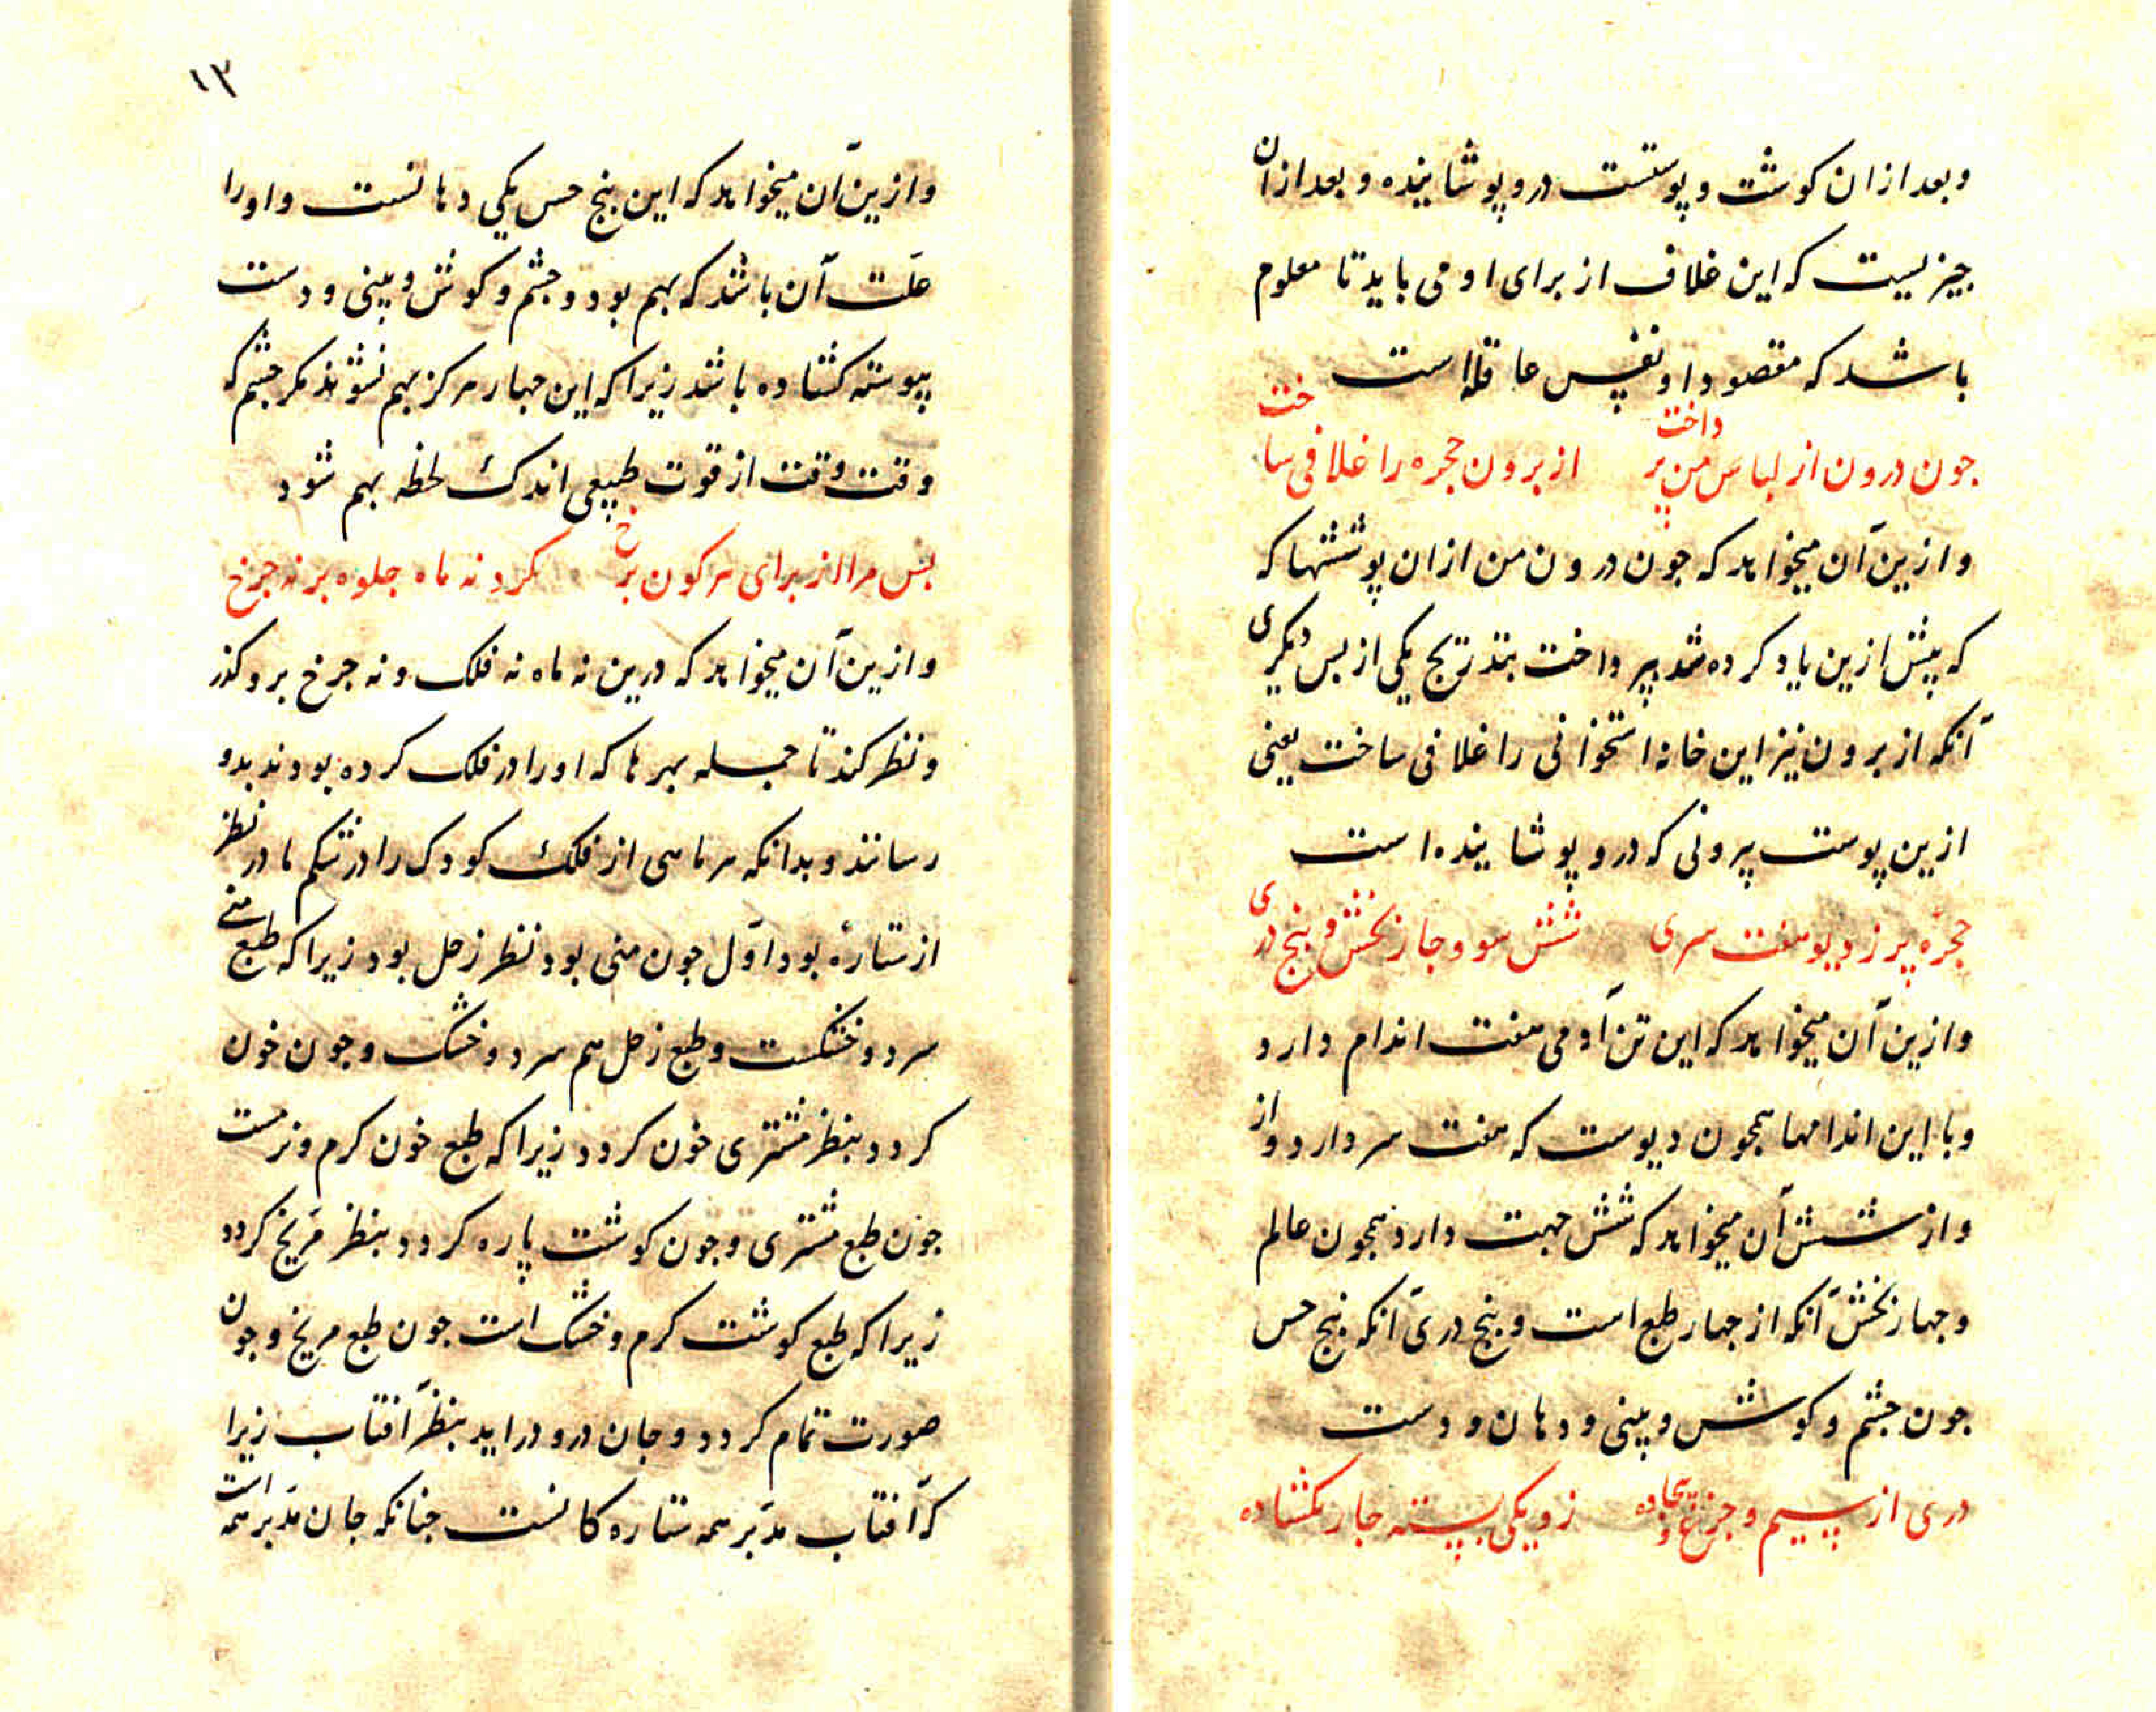 وبعد ازان کوشت و پوستست درو پوشانیده و بعد ازان
جیزیست که این غلاف از برای او می باید تا معلوم
باشد که مقصود او نفس عاقله است
جون درون از لباس من پرداخت از برون حجره را غلافی ساخت
و ازین آن میخواهد که جون درون من ازان پوششها که
که پیش ازین یاد کرده شد بپرداخت بتدریج یکی از بس دیکری
آنکه از برون نیز این خانه استخوانی را غلافی ساخت یعنی
ازین پوست بیرونی که درو پوشانیده است
حجره پر ز دیو هفت سری شش سو و جار بخش و بنج دری
و ازین آن میخواهد که این تن آدمی هفت اندام دارد
و با این اندامها همجون دیوست که هفت سر دارد و از
و از شش آن میخواهد که شش جهت دارد همجون عالم
و جهار بخش آنکه از جهار طبع است و بنج دری آنکه بنج حس
جون جشم و کوش و بینی و دهان و دست
دری از سیم و جزع و بیجاده زو یکی بسته جار بکشاده
۱۳
و ازین آن میخواهد که این بنج حس یکی دهانست و او را
علت آن باشد که بهم بود و جشم و کوش و بینی و دست
پیوسته کشاده باشد زیرا که این جهار هرکز بهم نشوند مکر جشم که
وقت وقت از قوت طبیعی اندک لحظه بهم شود
بس مرا از برای هر کون برخ کرد نه ماه جلوه بر نه جرخ
و ازین آن میخواهد که درین نه ماه نه فلک و نه جرخ برو کذر
و نظر کند تا جمله بهرها که او را در فلک کرده بودند بدو
رسانند و بدانکه هر ماهی از فلک کودک را در شکم مادر نظر
از ستاره بود اول جون منی بود نظر زحل بود زیرا که طبع منی
سرد و خشکست و طبع زحل هم سرد و خشک و جون خون
کردد بنظر مشتری خون کردد زیرا که طبع خون کرم و نرمست
جون طبع مشتری و جون کوشت پاره کردد بنظر مریخ کردد
زیرا که طبع کوشت کرم و خشک است جون طبع مریخ و جون
صورت تمام کردد و جان درو دراید بنظر آفتاب زیرا
که آفتاب مدبر همه ستارکانست جنانکه جان مدبر همه است